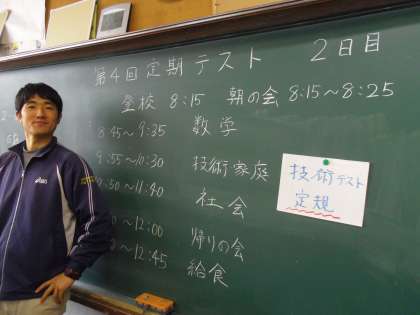 第4回定期テスト 2日目
登校 8:15 朝の会 8:15～8:25
8:45～9:35 数学
9:55～10:30 技術家庭
10:50～11:40 社会
～12:00 帰りの会
～12:45 給食
技術テスト
定規
asics